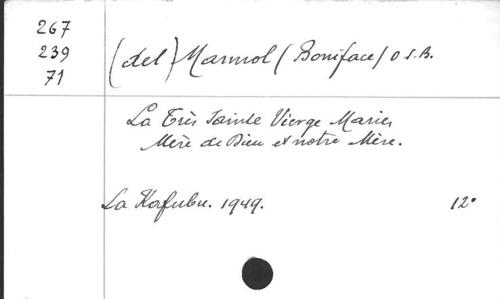 267
239
71
(del) Marmol (Boniface) O.S.B.
La Très Sainte Vierge Marie,
Mère de Dieu et notre Mère.
La Kafubu. 1949.
12°